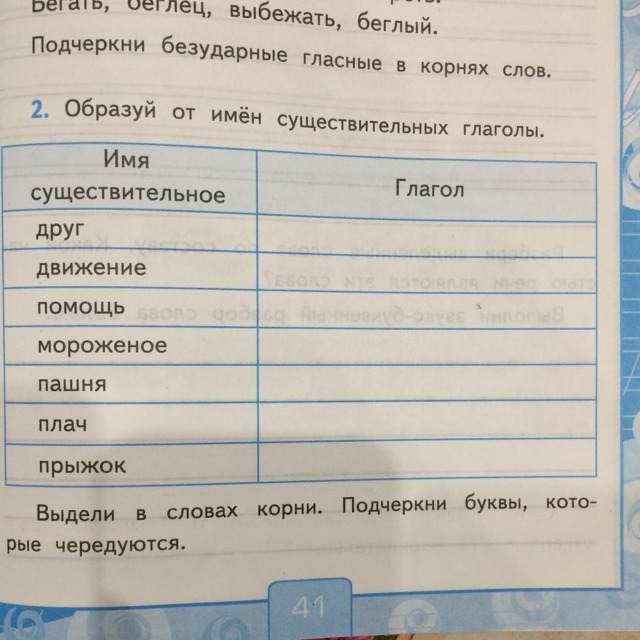 Бегать, беглец, выбежать, беглый.
Подчеркни безударные гласные в корнях слов.
2. Образуй от имён существительных глаголы.
Имя
существительное
Глагол
друг
движение
помощь
мороженое
пашня
плач
прыжок
Выдели в словах корни. Подчеркни буквы, кото-
рые чередуются.
41